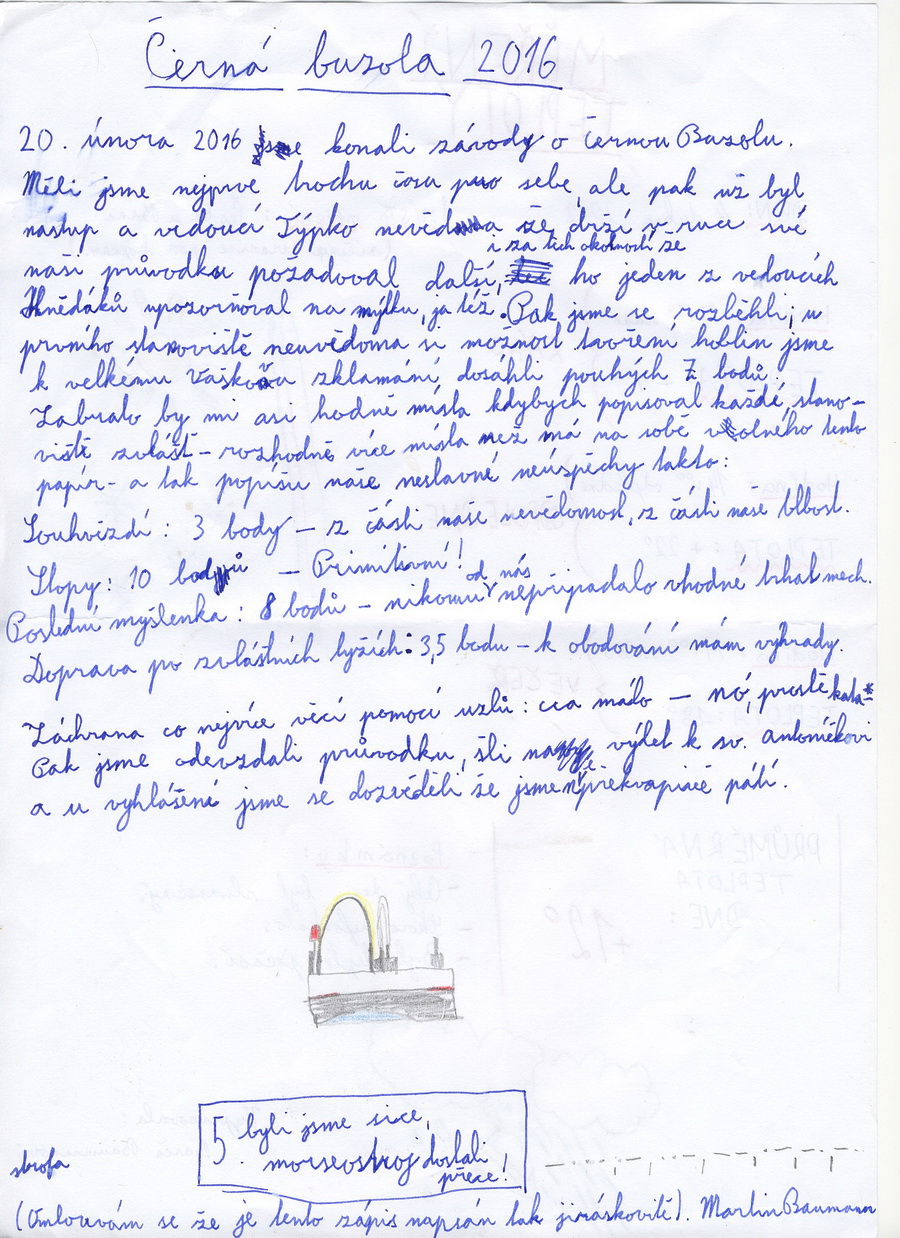 Černá buzola 2016
20. února 2016 jsme konali závody o Černou Buzolu.
Měli jsme nejprve trochu času pro sebe, ale pak už byl
nástup a vedoucí Týpko nevědoma že drží v ruce své
i za těch okolností že
naši průvodku požadoval další, ho jeden z vedoucích
Hnědáků upozorňoval na mýlku, já též. Pak jsme se rozběhli; u
prvního stanoviště neuvědoma si možnost tvoření hoblin jsme
k velkému Vaškova zklamání, dosáhli pouhých 7 bodů.
Zabralo by mi asi hodně místa kdybych popisoval každé stano-
viště zvlášť - rozhodně více místa než má na sobě volného tento
papír - a tak popíšu naše neslavné neúspěchy takto:
Souhvězdí: 3 body - z části naše nevědomost, z části naše blbost.
Stopy: 10 bodů - Primitivní!
Poslední myšlenka: 8 bodů - nikomu od nás nepřipadalo vhodné trhat mech.
Doprava po zvláštních lyžích: 3,5 bodu - k obodování mám výhrady.
Záchrana co nejvíce věcí pomocí uzlů: cca málo - nó, prostě kata-*
Pak jsme odevzdali průvodku, šli na výlet k sv. antoníčkovi
a u vyhlášení jsme se dozvěděli že jsme překvapivě pátí.
5. byli jsme sice,
morseostroj dostali
přece!
strofa
(Omlouvám se že je tento zápis napsán tak jiráskovitě). Martin Baumann